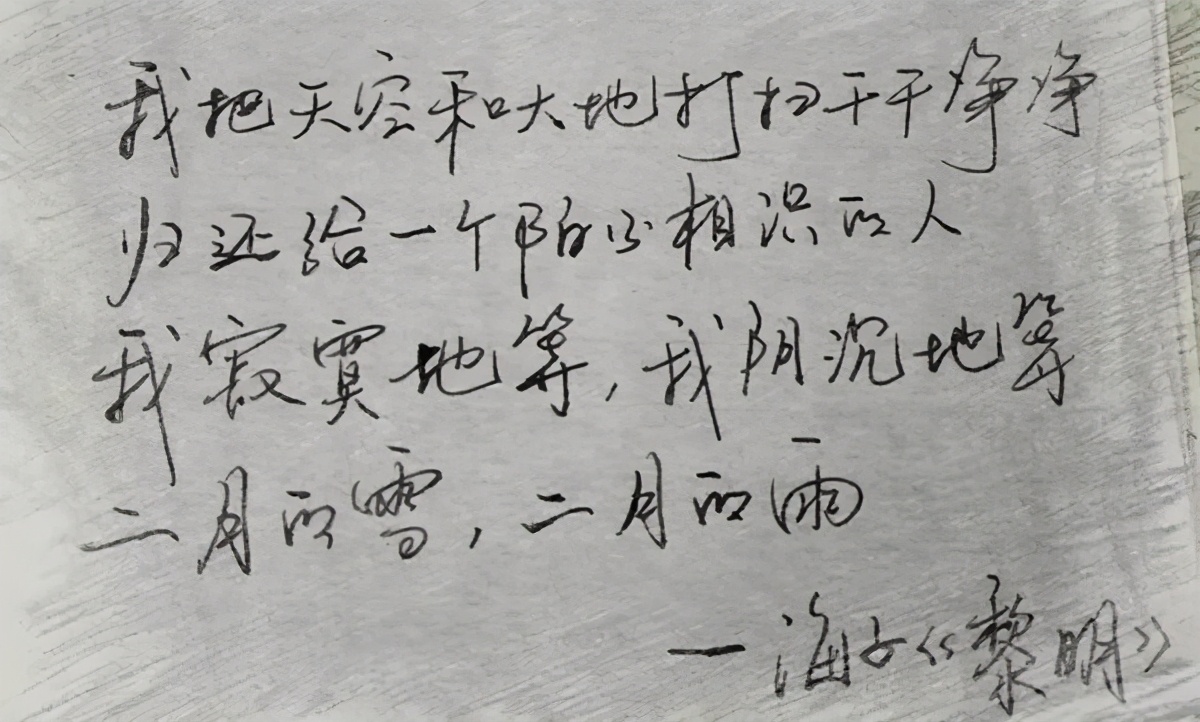 我把天空和大地打扫干干净净
归还给一个陌不相识的人
我寂寞地等,我阴沉地等
二月的雪,二月的雨
一海子《黎明》